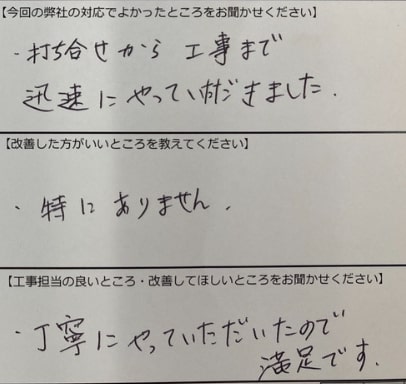 【今回の弊社の対応でよかったところをお聞かせください】
・打ち合せから 工事まで
迅速にやっていただきました.
【改善した方がいいところを教えてください】
・特にありません.
【工事担当の良いところ・改善してほしいところをお聞かせください】
・丁寧にやっていただいたので
満足です.